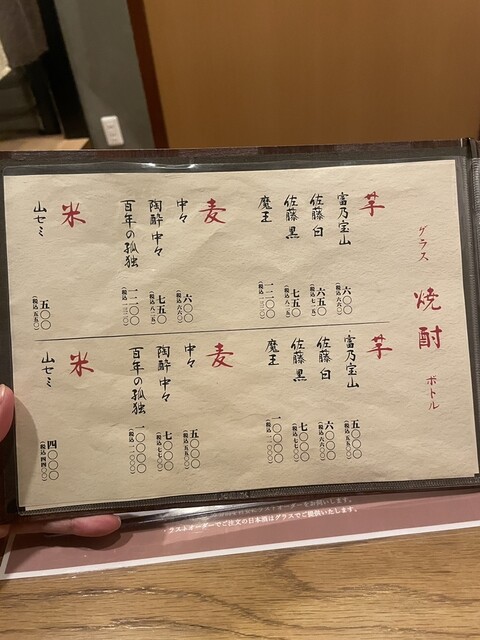 グラス 焼酎 ボトル
芋
富乃宝山 六〇〇 (税込 六六〇)
佐藤 白 六五〇 (税込 七一五)
佐藤 黒 七五〇 (税込 八二五)
魔王 一二〇〇 (税込 一三二〇)
麦
中々 六〇〇 (税込 六六〇)
陶酔 中々 七五〇 (税込 八二五)
百年の孤独 一二〇〇 (税込 一三二〇)
米
山セミ 五〇〇 (税込 五五〇)
芋
富乃宝山 五〇〇〇 (税込 五五〇〇)
佐藤 白 六〇〇〇 (税込 六六〇〇)
佐藤 黒 七〇〇〇 (税込 七七〇〇)
魔王 一〇〇〇〇 (税込 一一〇〇〇)
麦
中々 五〇〇〇 (税込 五五〇〇)
陶酔 中々 七〇〇〇 (税込 七七〇〇)
百年の孤独 一〇〇〇〇 (税込 一一〇〇〇)
米
山セミ 四〇〇〇 (税込 四四〇〇)
ラストオーダーをお伺いします。
ラストオーダーでご注文の日本酒はグラスでご提供いたします。